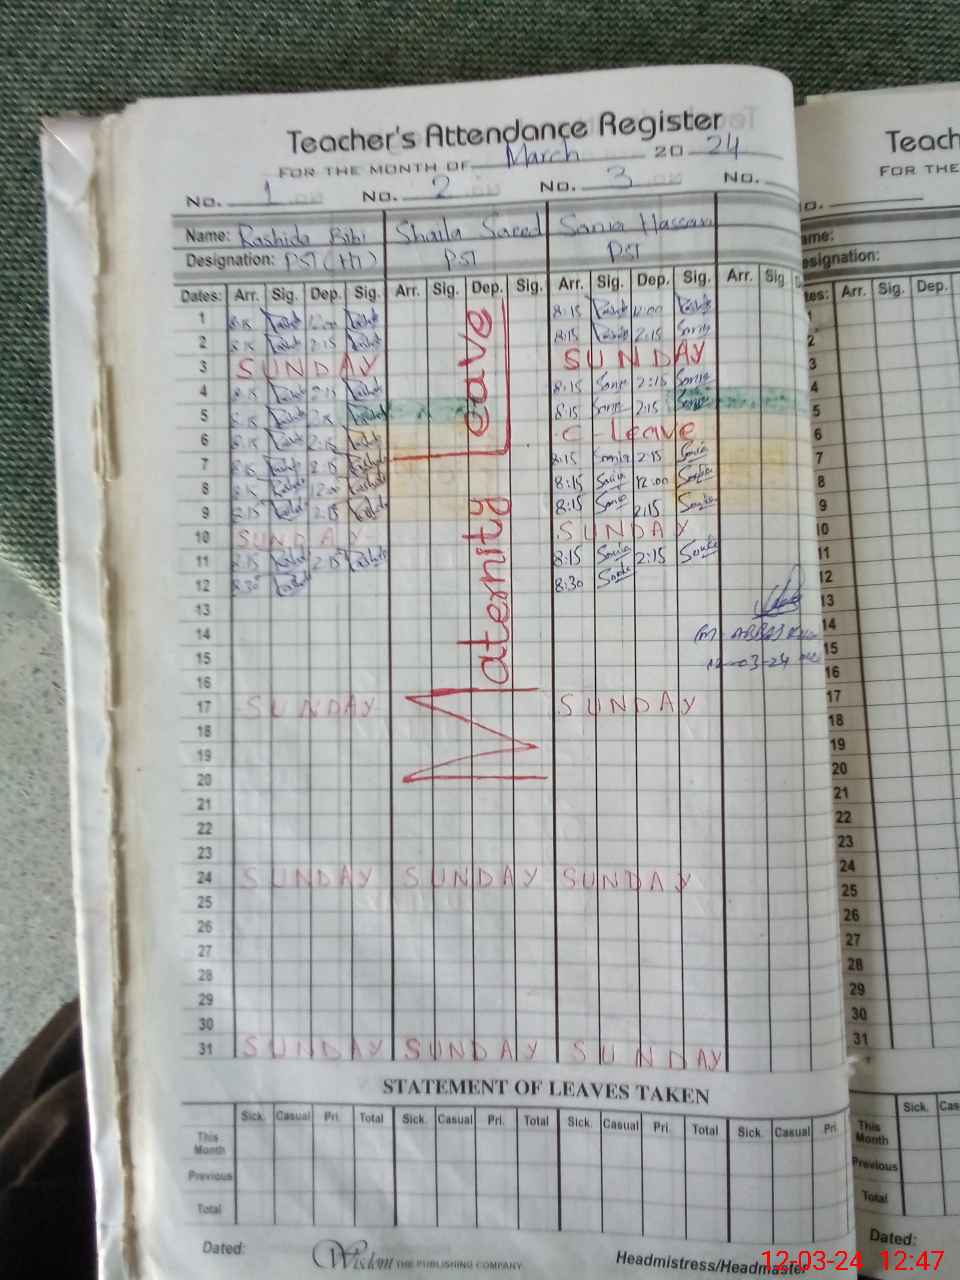 Teacher's Attendance Register
FOR THE MONTH OF March 20 24
No. 1 No. 2 No. 3 No.
Name: Rashida Bibi Shaila Saeed Sonia Hassan
Designation: PST (H) PST PST
Dates: Arr. Sig. Dep. Sig. Arr. Sig. Dep. Sig. Arr. Sig. Dep. Sig. Arr. Sig.
1 8:15 12:00 8:15 12:00
2 8:15 2:15 8:15 2:15 Sonia
3 SUNDAY SUNDAY
4 8:15 2:15 8:15 Sonia 2:15 Sonia
5 8:15 2:15 8:15 Sonia 2:15 Sonia
6 8:15 2:15 C-Leave
7 8:15 2:15 8:15 Sonia 2:15 Sonia
8 8:15 12:00 8:15 Sonia 12:00 Sonia
9 8:15 2:15 8:15 Sonia 2:15 Sonia
10 SUNDAY SUNDAY
11 8:15 2:15 8:15 Sonia 2:15 Sonia
12 8:30 8:30 Sonia
13
14
15
16
17 SUNDAY SUNDAY
18
19
20
21
22
23
24 SUNDAY SUNDAY SUNDAY
25
26
27
28
29
30
31 SUNDAY SUNDAY SUNDAY
Maternity Leave
12-03-24
STATEMENT OF LEAVES TAKEN
Sick. Casual Pri. Total Sick. Casual Pri. Total Sick. Casual Pri. Total Sick. Casual Pri.
This Month
Previous
Total
Dated:
Wisdom THE PUBLISHING COMPANY
Headmistress/Headmaster
Teach
FOR THE
No.
ame:
esignation:
tes: Arr. Sig. Dep.
1
2
3
4
5
6
7
8
9
10
11
12
13
14
15
16
17
18
19
20
21
22
23
24
25
26
27
28
29
30
31
Sick. Cas
This Month
Previous
Total
Dated:
12-03-24 12:47